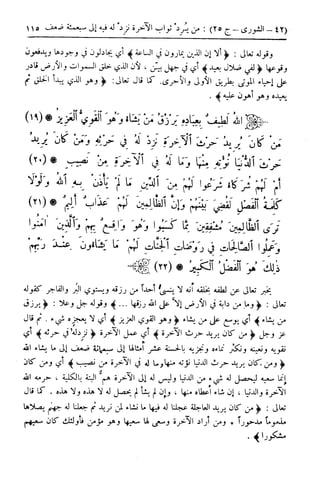 (٤٢ – الشورى – ج ٢٥) : من يُرِدْ ثواب الآخرة نزِدْ له فيه إلى سبعمئة ضعف ١١٥
وقوله تعالى : ﴿ ألا إن الذين يمارون في الساعة ﴾ أي يجادلون في وجودها ويدفعون
وقوعها ﴿ لفي ضلال بعيد ﴾ أي في جهل بيّن ، لأن الذي خلق السموات والأرض قادر
على إحياء الموتى بطريق الأولى والأحرى. كما قال تعالى: ﴿ وهو الذي يبدأ الخلق ثم
يعيده وهو أهون عليه ﴾ .
اللَّهُ لَطِيفٌ بِعِبَادِهِ يَرْزُقُ مَنْ يَشَاءُ وَهُوَ الْقَوِيُّ الْعَزِيزُ * (١٩)
مَنْ كَانَ يُرِيدُ حَرْثَ الْآخِرَةِ نَزِدْ لَهُ فِي حَرْثِهِ وَمَنْ كَانَ يُرِيدُ
حَرْثَ الدُّنْيَا نُؤْتِهِ مِنْهَا وَمَا لَهُ فِي الْآخِرَةِ مِنْ نَصِيبٍ * (٢٠)
أَمْ لَهُمْ شُرَكَاءُ شَرَعُوا لَهُمْ مِنَ الدِّينِ مَا لَمْ يَأْذَنْ بِهِ اللَّهُ وَلَوْلَا
كَلِمَةُ الْفَصْلِ لَقُضِيَ بَيْنَهُمْ وَإِنَّ الظَّالِمِينَ لَهُمْ عَذَابٌ أَلِيمٌ * (٢١)
تَرَى الظَّالِمِينَ مُشْفِقِينَ مِمَّا كَسَبُوا وَهُوَ وَاقِعٌ بِهِمْ وَالَّذِينَ آمَنُوا
وَعَمِلُوا الصَّالِحَاتِ فِي رَوْضَاتِ الْجَنَّاتِ لَهُمْ مَا يَشَاءُونَ عِنْدَ رَبِّهِمْ
ذَلِكَ هُوَ الْفَضْلُ الْكَبِيرُ * (٢٢)
يخبر تعالى عن لطفه بخلقه أنه لا ينسى أحداً من رزقه ويستوي البر والفاجر كقوله
تعالى : ﴿ وما من دابة في الأرض إلا على الله رزقها ... ﴾ وقوله جل وعلا : ﴿ يرزق
من يشاء ﴾ أي يوسع على من يشاء ﴿ وهو القوي العزيز ﴾ أي لا يعجزه شيء . ثم قال
عز وجل ﴿ من كان يريد حرث الآخرة ﴾ أي عمل الآخرة ﴿ نزد له في حرثه ﴾ أي
نقويه ونعينه ونكثر نماءه ونجزيه بالحسنة عشر أمثالها إلى سبعمائة ضعف إلى ما يشاء الله
﴿ ومن كان يريد حرث الدنيا نؤته منها وما له في الآخرة من نصيب ﴾ أي ومن كان
إنما سعيه ليحصل له شيء من الدنيا وليس له إلى الآخرة هم البتة بالكلية ، حرمه الله
الآخرة والدنيا ، إن شاء أعطاه منها ، وإن لم يشأ لم يحصل له لا هذه ولا هذه . كما قال
تعالى : ﴿ من كان يريد العاجلة عجلنا له فيها ما نشاء لمن نريد ثم جعلنا له جهنم يصلاها
مذموماً مدحوراً * ومن أراد الآخرة وسعى لها سعيها وهو مؤمن فأولئك كان سعيهم
مشكورا ﴾ .